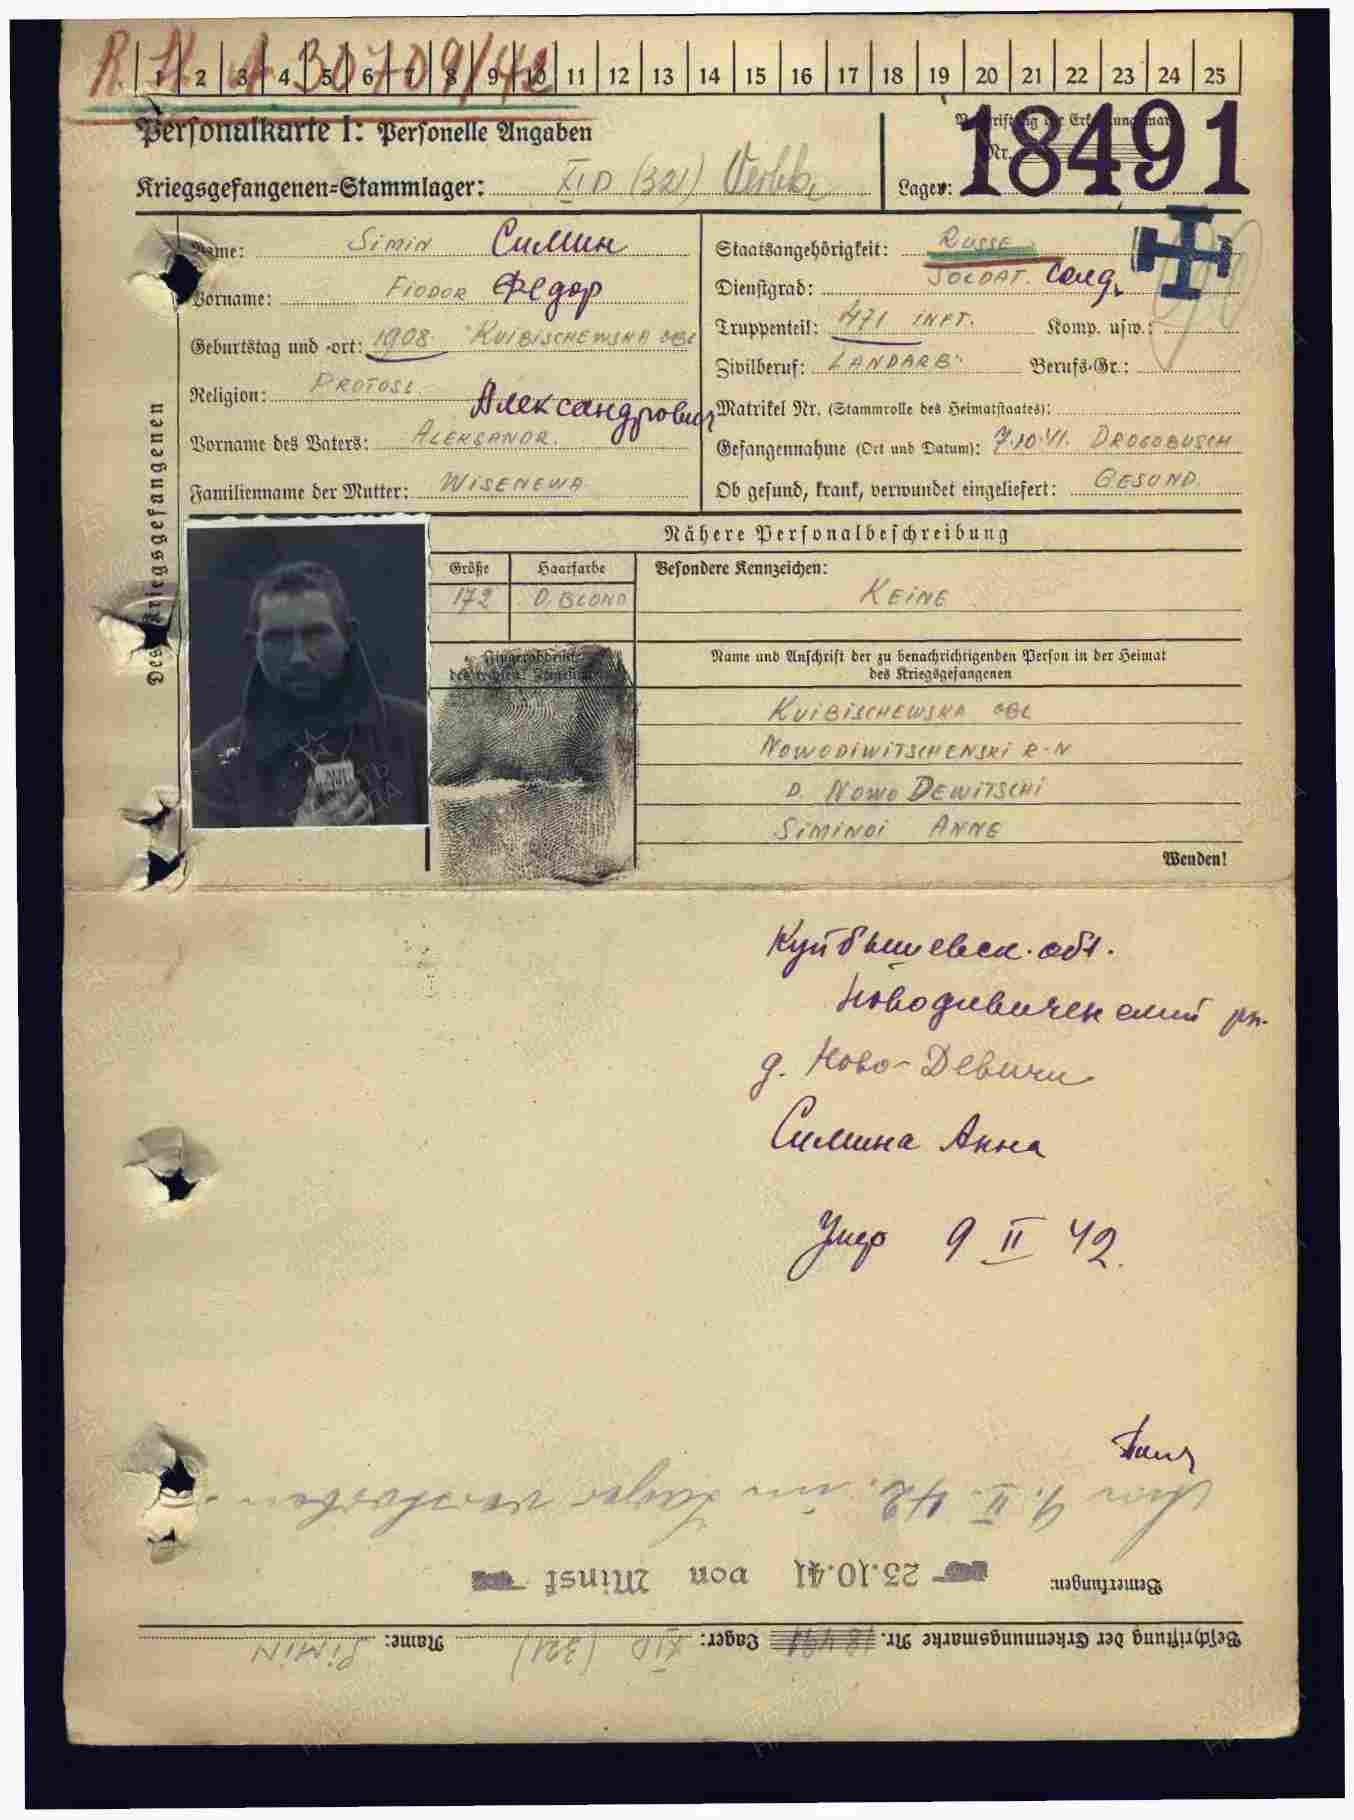 R. 1 2 3 4 5 6 7 8 9 10 11 12 13 14 15 16 17 18 19 20 21 22 23 24 25
Personalkarte I: Personelle Angaben
Kriegsgefangenen-Stammlager: XI D (321)
Nr.
Lager: 18491
Des Kriegsgefangenen
Name: SIMIN Симин
Vorname: FIODOR Федор
Geburtstag und -ort: 1908 KUIBISCHEWSKA OBL
Religion:
Александрович
Vorname des Vaters: ALEKSANDR.
Familienname der Mutter: WISENEWA
Staatsangehörigkeit: RUSSE
Dienstgrad: SOLDAT. солд.
Truppenteil: 471 INFT. Komp. usw.:
Zivilberuf: LANDARB. Berufs-Gr.:
Matrikel Nr. (Stammrolle des Heimatstaates):
Gefangennahme (Ort und Datum): DROGOBUSCH
Ob gesund, krank, verwundet eingeliefert: GESUND.
Nähere Personalbeschreibung
Größe Haarfarbe Besondere Kennzeichen:
172 D. BLOND KEINE
Fingerabdruck
Name und Anschrift der zu benachrichtigenden Person in der Heimat
des Kriegsgefangenen
KUIBISCHEWSKA OBL
NOWODIWITSCHENSKI R-N
D. NOWO DEWITSCHI
SIMINOI ANNE
Wenden!
Куйбышевск. обл.
Новодивиченский рн.
д. Ново-Девичи
Симина Анна
Умер 9 II 42.
Beschriftung der Erkennungsmarke Nr. 18491 Lager: XI D (321) Name: SIMIN
Bemerkungen:
25.10.41 von Minsk
9. II. 42. im Lager verstorben.